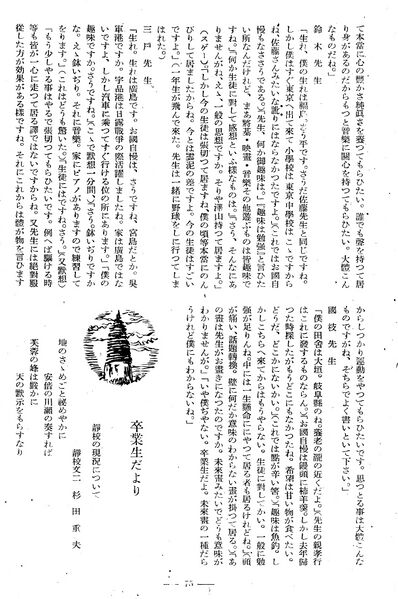 て本當に心の豐かさ純眞さを養つてもらひたい。誰でも聲を持つて居
り身があるのだからもつと音樂に關心を持つてもらひたい。大體こん
なものだね。
鈴木先生
「生れ、僕の生れは福島。さう平です。さうだ佐藤先生と同じですね。
しかし僕はすぐ東京へ出て來て小學校は東京中學校はこゝですから
ね、佐藤さんみたいな訛りにはならなかつたですよ。」(これではお國自
慢もなささうである。)「先生、何か御趣味は。」「趣味は勉强」と言ひた
い所なんだけれど、まあ將棋・映畫・音樂その他遊ぶものは皆趣味で
すね。」「何か生徒に對して感想といふ樣なものは。」「さう、そんなにあ
りませんがね、えゝ、一般の思想ですか。そりや澤山持つて居ますよ。」
(スゲーノ)「しかし今の生徒は張切つて居ますね、僕の頃等本當にのん
びりして居ましたからね。今とは雲泥の差ですよ。今の生徒はすごい
ですよ。」(一年生が飛んで來た。先生は一緒に野球をしに行つてしま
はれた。)
三戸先生
「生れ。生れは廣島です。お國自慢は、さうですね、宮島だとか。吳
軍港ですか。宇品港は日露戰爭の際活躍しましたね。家は廣島ではな
いですよ、しかし汽車に乘つてすぐ行ける位の所にあります。」「僕の
趣味ですか。さうですね。」(こゝで默想一分間。)「さう。鉢いぢりですか
な。えゝ鉢いぢり。それに音樂。家にピアノがありますので練習して
をります。」(これはどうも驚いた。)「生徒にはですね。さう。」(又默想)
「もう少しやる事はやるで張切つてもらひたいです。例へば驅ける時
等も皆が一心に走つて居る譯ではないですからね。又先生には絕對服
從した方が効果がある樣ですね。それにこれからは體が物を言ひます
からしつかり運動をやつてもらひたいです。思つとる事は大體こんな
ものですがね、そちらでよく書いといて下さい。」
國枝先生
「僕の田舍は大垣。岐阜縣のね。養老の瀧の近くだよ。」(先生の親孝行
はこれに發するものならん。)「お國自慢は饅頭に柿羊羹。しかし去年歸
つた時探したがもうどこにもなかつたね。希望は甘い物が食べたい。
どうだ、どこかにないかい。」(これでは點が辛い筈。)「趣味は魚釣。し
かしこちらへ來てからはもうやらない。生徒に對してかい。一般に勉
强が足りんね。中には一生懸命にやつて居る者も居るけれどね。」(頭
が痛い、話題轉換。壁に何だか意味のわからない畫が掛つて居る。)「あ
の畫は先生がお畫きになつたのですか。未來畫みたいでどうも意味が
わかりませんが。」「いや僕ぢやない。卒業生だよ。未來畫の一種だら
うけれど僕にもわからないね。」
卒業生だより
靜校の現況について
靜校文二 杉田重夫
地のさゝめごと祕めやかに
安倍の川瀨の奏すれば
芙蓉の峰は嚴かに
天の默示をもらすなり
— 75 —